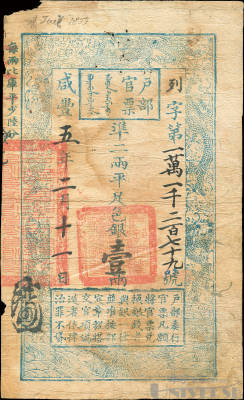 戶部
官票
列字第一萬一千二百七十九號
準二兩平足色銀壹兩
咸豐五年二月十一日
每兩比庫平少陸分
戶部奏行
官票凡願
將官票兌
換銀錢者
與銀一律
並准按部
定章程搭
交官項偽
造者依律
治罪不貸